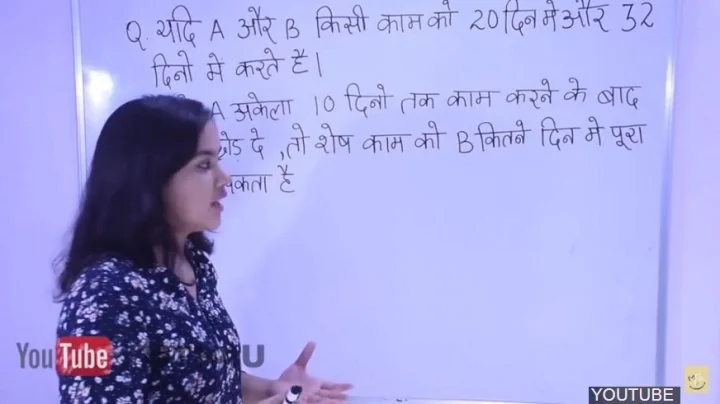 Q. यदि A और B किसी काम को 20 दिन मे और 32
दिनो मे करते है।
A अकेला 10 दिनो तक काम करने के बाद
दे, तो शेष काम को B कितने दिन मे पूरा
सकता है
YouTube
YOUTUBE